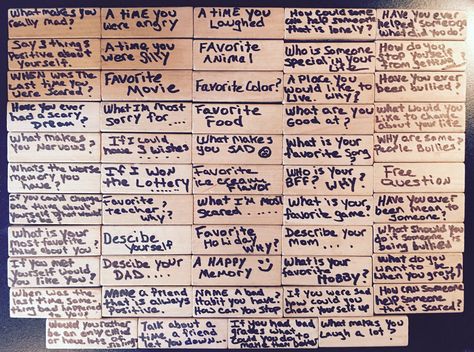 What makes you
really mad?
A time you
were angry
A time you
Laughed
How could some
one help someone
that is lonely?
Have you ever
helped someone
what did you do?
Say 3 things
Positive about
yourself.
A time you
were silly
Favorite
Animal
Who is Someone
special in your
Life
How do you
stop yourself
from
WHEN was the
last time you
were scared?
Favorite
Movie
Favorite Color?
A place you
would like to
Live. Why?
Have you ever
been bullied?
Have you ever
had a scary
Dream
What I'm most
sorry for....
Favorite
Food
What are you
Good at?
What would you
like to change
about your life
What makes
you Nervous?
If I could
have 3 wishes
What makes
you SAD
What is your
favorite song
Why are some
People Bullies?
What's the worse
memory you
have?
If I won
the Lottery
Favorite
ice cream
flavor
Who is your
BFF? Why?
Free
Question
If you could change
one thing about
yourself what would
Favorite
teacher?
Why?
What I'm most
Scared....
What is your
favorite game?
Have you ever
been mean to
someone?
What is your
most favorite
thing about you?
Descibe
Yourself
Favorite
Holiday
Why?
Describe your
mom...
What should you
do if someone is
being bullied
If you met
yourself would
you like you?
Descibe your
DAD....
A HAPPY
Memory
What is your
favorite
Hobby?
What do you
want to be
when you grow up?
When was the
last time some-
thing bad happen
to you?
NAME a friend
that is always
Positive.
NAME a bad
Habit you have?
How can you stop
If you were sad
how could you
cheer yourself up
How can someone
help someone
that is scared?
Would you rather
be an only child
or have lots of
Talk about a
time a friend
let you down...
If you had bad
grades what
could you do to
make that better
What makes you
Laugh a lot?